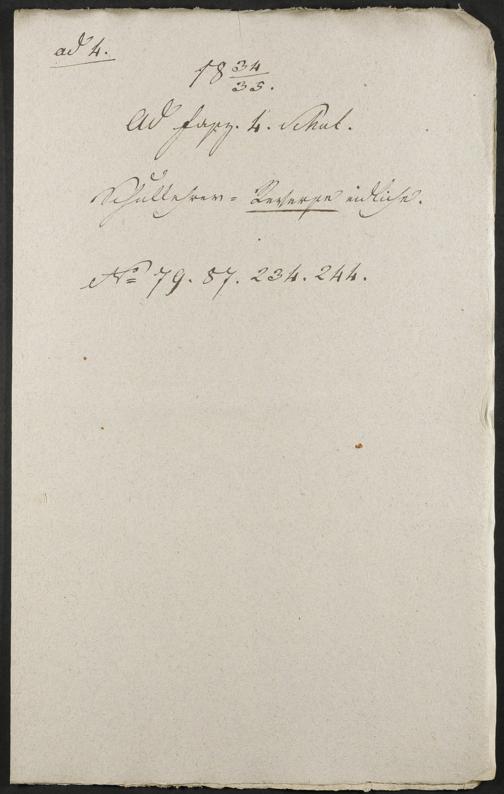 ad 4.
18 34/35.
Ad fasz. 4. Schul.
Schullehrer = Reverse eidliche.
No 79. 87. 234. 244.